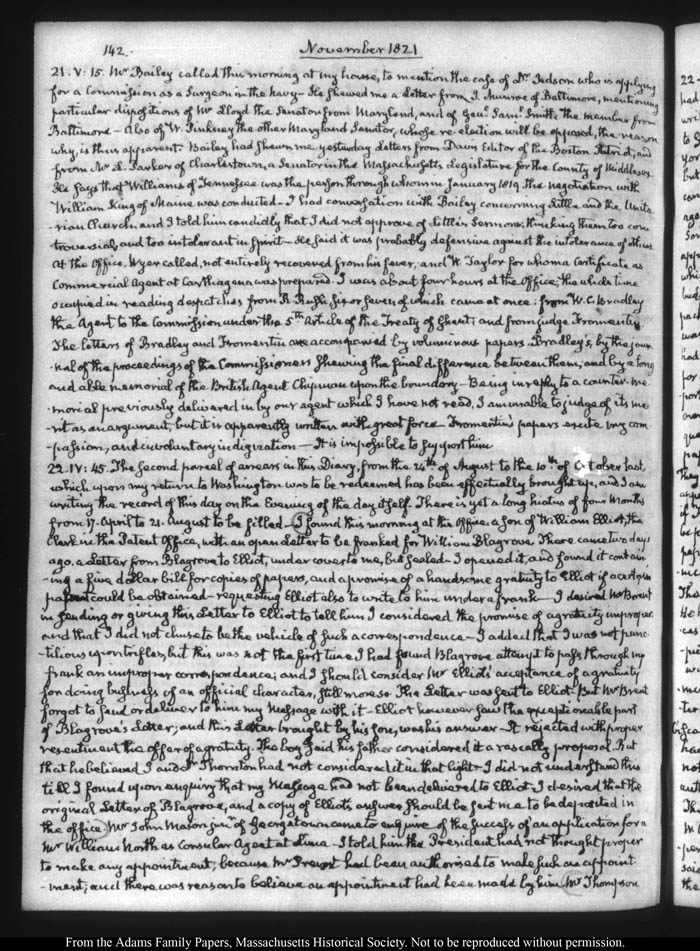 142.
November 1821
21. V: 15. Mr Bailey called this morning at my house, to mention the case of Dr Judson who is applying
for a Commission as a Surgeon in the Navy — He shewed me a Letter from J. Munroe of Baltimore, mentioning
particular dispositions of Mr Lloyd the Senator from Maryland, and of Genl Saml Smith, the member from
Baltimore — Also of W. Pinkney the other Maryland Senator, whose re-election will be opposed, the reason
why, is thus apparent. Bailey had shewn me yesterday Letters from Davis Editor of the Boston Patriot, and
from Mr L. Parker of Charlestown, a Senator in the Massachusetts Legislature for the County of Middlesex.
He says that Williams of Tennessee was the person through whom in January 1819. the negotiation with
William King of Maine was conducted — I had conversation with Bailey concerning Little and the Unita-
-rian Church, and I told him candidly that I did not approve of Little's Sermons, thinking them too con-
troversial, and too intolerant in Spirit — He said it was probably defensive against the intolerance of others.
At the Office, Wyer called, not entirely recovered from his fever, and W. Taylor for whom a Certificate as
Commercial Agent at Carthagena was prepared. I was about four hours at the Office; the whole time
occupied in reading despatches from R. Rush, six or seven of which came at once: from W. C. Bradley
the Agent to the Commission under the 5th Article of the Treaty of Ghent; and from judge Fromentin.
The Letters of Bradley and Fromentin are accompanied by voluminous papers. Bradley's, by the jour-
-nal of the proceedings of the Commissioners shewing the final difference between them; and by a long
and able memorial of the British Agent Chipman upon the boundary — Being in reply to a counter-me-
-morial previously delivered in by our agent which I have not read, I am unable to judge of its me-
-rit as an argument, but it is apparently written with great force — Fromentin's papers excite my com-
-passion, and involuntary indignation — It is impossible to support him
22. IV: 45. The second parcel of arrears in this Diary, from the 24th of August to the 10th of October last,
which upon my return to Washington was to be redeemed has been effectually brought up, and I am
writing the record of this day on the Evening of the day itself. There is yet a long hiatus of four Months
from 17. April to 21. August to be filled — I found this morning at the Office a Son of William Elliot, the
Clerk in the Patent Office, with an open Letter to be franked for William Blagrove. There came two days
ago, a Letter from Blagrove to Elliot, under cover to me, but sealed — I opened it, and found it contain-
-ing a five dollar bill for copies of papers, and a promise of a handsome gratuity to Elliot if a certain
patent could be obtained — requesting Elliot also to write to him under a frank — I desired Mr Brent
in sending or giving this Letter to Elliot to tell him I considered the promise of a gratuity improper
and that I did not chuse to be the vehicle of such a correspondence — I added that I was not punc-
-tilious upon trifles, but this was not the first time I had found Blagrove attempt to pass through my
frank an improper correspondence; and I should consider Mr Elliot's acceptance of a gratuity
for doing business of an official character, still more so. The Letter was sent to Elliot. But Mr Brent
forgot to send or deliver to him my Message with it — Elliot however saw the exceptionable part
of Blagrove's Letter; and this Letter brought by his son, was his answer — It rejected with proper
resentment the offer of a gratuity. The boy said his father considered it a rascally proposal. But
that he believed I and Dr Thornton had not considered it in that light. I did not understand this
till I found upon enquiry that my Message had not been delivered to Elliot. I desired that the
original Letter of Blagrove, and a copy of Elliot's answer should be sent me to be deposited in
the office. Mr John Mason junr. of Georgetown came to enquire of the success of an application for a
Mr William North as Consular Agent at Lima — I told him the President had not thought proper
to make any appointment; because Mr Prevost had been authorised to make such an appoint-
-ment; and there was reason to believe an appointment had been made by him. Mr Thompson
From the Adams Family Papers, Massachusetts Historical Society. Not to be reproduced without permission.